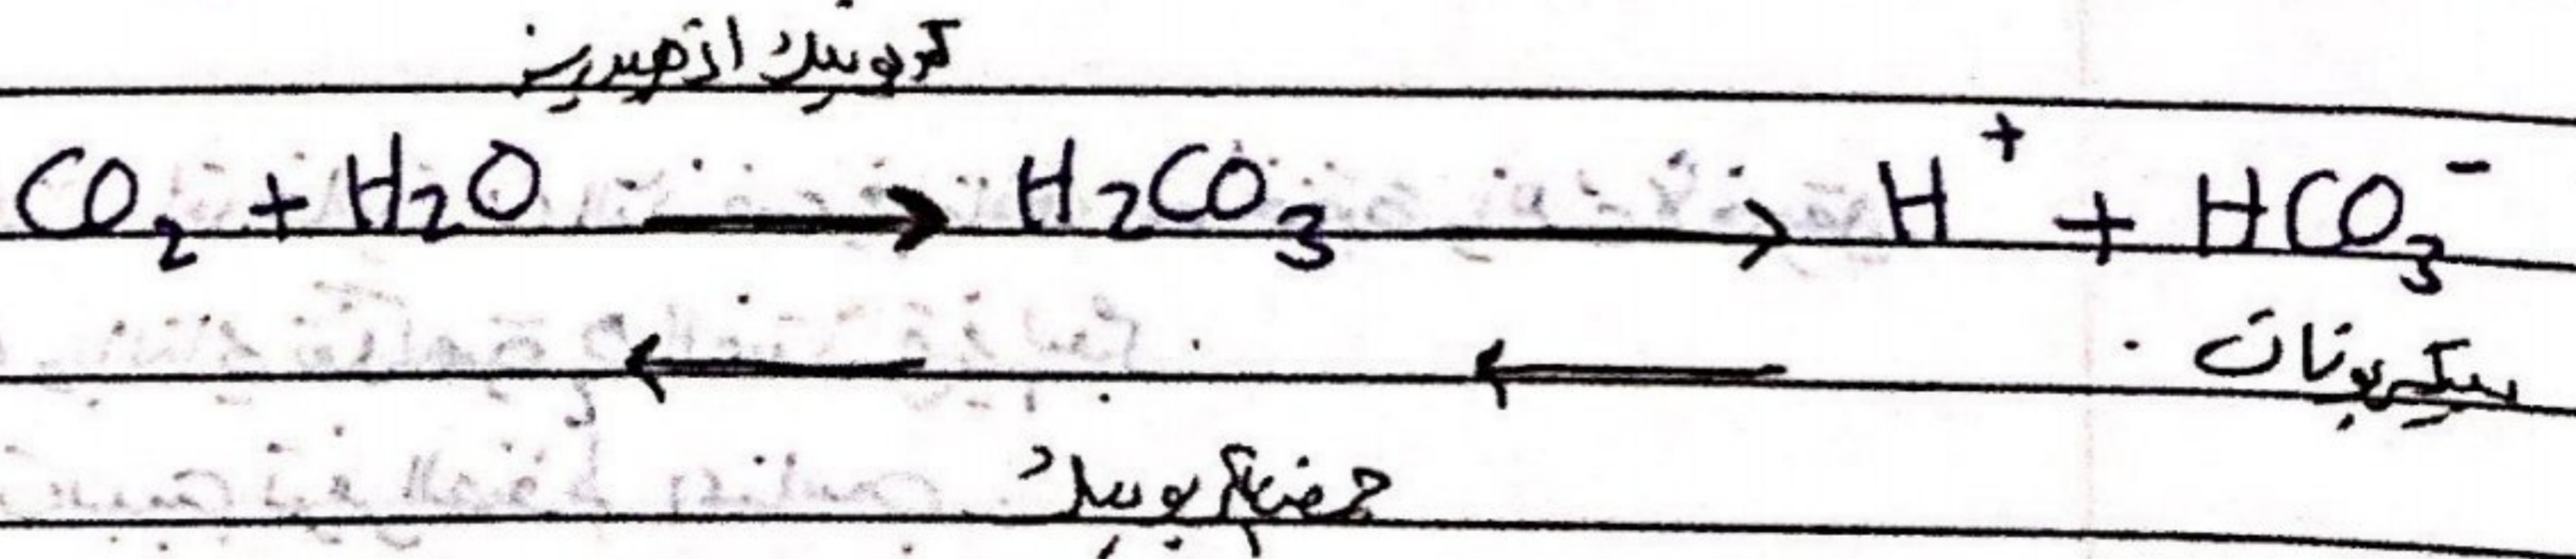 كربونيك انهيدريز
CO₂ + H₂O → H₂CO₃ → H⁺ + HCO₃⁻
← ← بيكربونات
حمض كربونيك